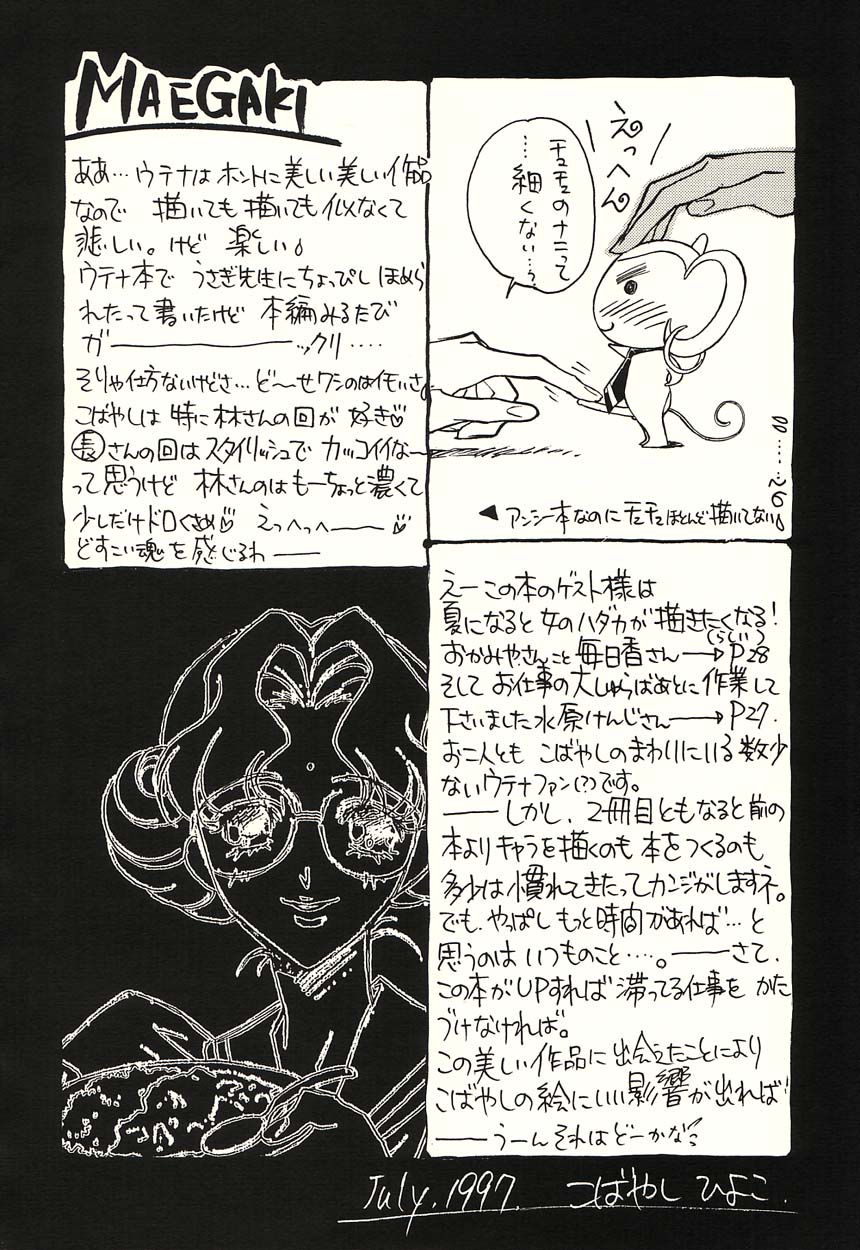 MAEGAKI
ああ…ウテナはホントに美しい美しい作品
なので 描いても描いても似なくて
悲しい。けど 楽しい♪
ウテナ本で うさぎ先生にちょっぴし ほめら
れたって書いたけど 本編みるたび
ガ――――――ックリ….
そりゃ仕方ないけどさ…ど〜せワシのはイモいさ。
こばやしは 特に林さんの回が 好き♡
長さんの回は スタイリッシュで カッコイイな〜
って思うけど 林さんのはもーちょっと濃くて
少しだけドロくさめ♡ えっへっへ――♡
どすこい魂を感じるわ――
えっへん
チュチュのナニって
…細くない…?
◀アンシー本なのにチュチュほとんど描いてない。
えー この本のゲスト様は
夏になると女のハダカが描きたくなる!
おかみやさんこと 毎日香さん→P28
そして お仕事の大しゅらばあとに 作業して
下さいました水原けんじさん→P27.
お二人とも こばやしのまわりにいる 数少
ないウテナファン(?)です。
――しかし、2冊目ともなると前の
本よりキャラを描くのも 本をつくるのも
多少は慣れてきたってカンジがしますネ。
でも、やっぱし もっと時間があれば…と
思うのは いつものこと….。――さて、
この本がUPすれば 滞ってる仕事を かた
づけなければ。
この美しい作品に 出会えたことにより
こばやしの絵にいい影響が出れば!
――うーん それはどーかな?
July.1997. こばやし ひよこ.